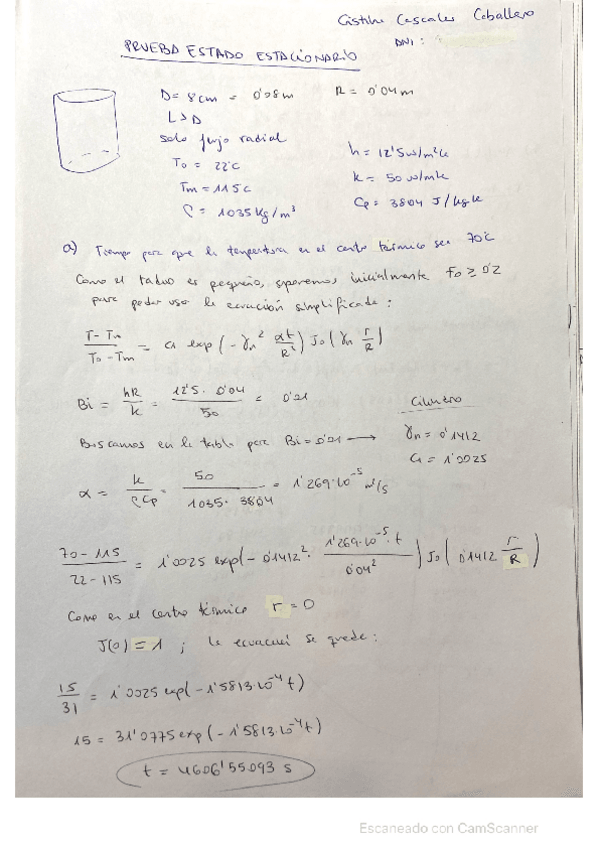 Cristina Cascales Caballero
DNI:
PRUEBA ESTADO ESTACIONARIO
D = 8 cm = 0'08 m R = 0'04 m
L>D
solo flujo radial
T0 = 22°C
h = 12'5 w/m²k
T∞ = 115 C
k = 50 w/mk
ρ = 1035 kg/m³
Cp = 3804 J/kg k
a) Tiempo para que la temperatura en el centro térmico sea 70°C
Como el radio es pequeño, suponemos inicialmente Fo ≥ 0'2
para poder uso la ecuación simplificada:
T - T∞ / T0 - T∞ = C1 exp (- γn² αt/R²) J0 (γn r/R)
Bi = hR/k = 12'5 · 0'04 / 50 = 0'01
Cilindro
Buscamos en la tabla para Bi = 0'01 → γn = 0'1412
C1 = 1'0025
α = k/ρCp = 50 / 1035 · 3804 = 1'269·10⁻⁵ m²/s
70 - 115 / 22 - 115 = 1'0025 exp(- 0'1412² · 1'269·10⁻⁵ · t / 0'04²) J0 (0'1412 r/R)
Como en el centro térmico r = 0
J(0) = 1 ; la ecuación se queda:
15/31 = 1'0025 exp(- 1'5813·10⁻⁴ t)
15 = 31'0775 exp (- 1'5813·10⁻⁴ t)
t = 4606'55093 s
Escaneado con CamScanner